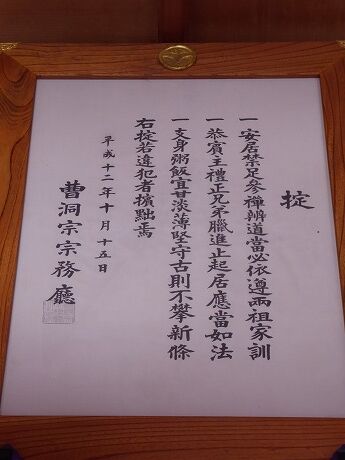 掟
一安居禁足參禪辨道當必依遵兩祖家訓
一恭賓主禮正兄弟職進止起居應當如法
一支身粥飯宜甘淡薄堅守古則不攀新條
右掟若違犯者擯黜焉
平成十二年十月十五日
曹洞宗宗務廳